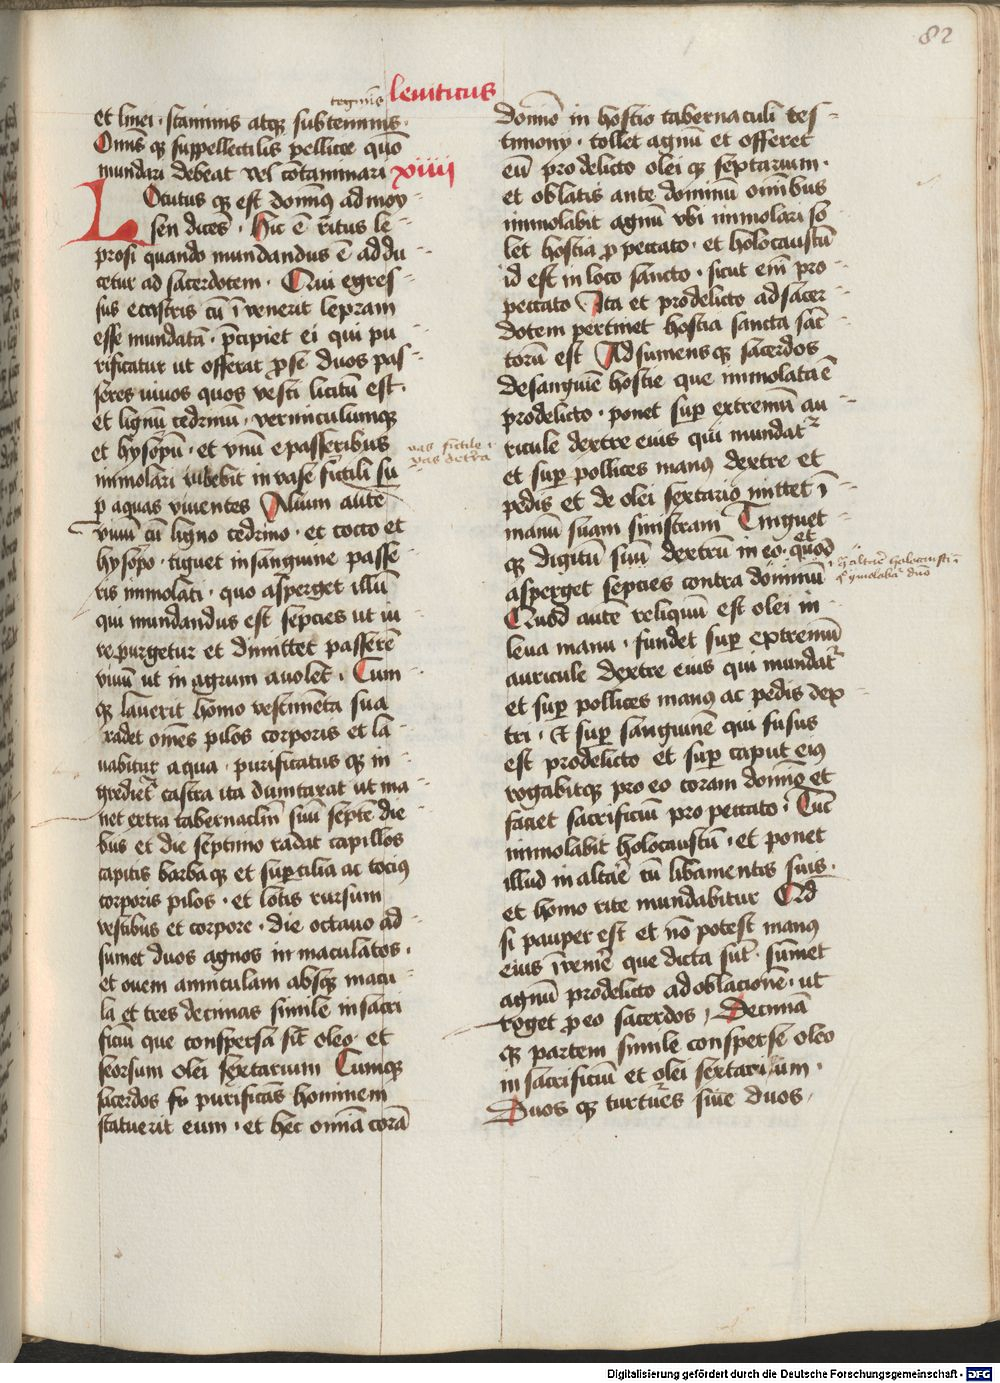 82
leuiticus
tegmīs
et linei · staminis atqꝫ subteminis ·
Omīs qꝫ suppellectilis pellicee quō
mundari debeat vel cōtaminari xiiii
LOcutus qꝫ est domīꝯ ad moy
sen dicēs · Hic ē ritus le
prosi quando mundandus ē addu
cetur ad sacerdotem · Qui egres
sus ecastris cū īvenerit lepram
esse mundatā · p̄cipiet ei qui pu
rificatur ut offerat ꝓ se duos pas
seres uiuos quos vesci licitū est ·
et lignū cedrinū · vermiculumqꝫ
et hysopū · et vnū epasseribus
immolari iubebit in vase fictili su
ꝑ aquas viuentes Alium autē
viuū cū ligno cedrino · et cocco et
hysopo · tīguet insanguine passe
ris immolati · quo asperget illū
qui mundandus est sepcies ut iu
re purgetur et dimittet passerē
viuū ut in agrum auolet · Cum
qꝫ lauerit homo vestimēta sua
radet omēs pilos corporis et la
uabitur aqua · purificatus qꝫ in
gredietᷣ castra ita dumtaxat ut ma
net extra tabernaclm̄ suū septē die
bus et die septimo radat capillos
capitis barbaqꝫ et suꝑcilia ac tociꝯ
corporis pilos · et lotis rursum
vestibus et corpore · die octauo ad
sumet duos agnos inmaculatos ·
et ouem anniculam absqꝫ macu
la et tres decimas simile insacri
ficiū que conspersa sit oleo · et
seorsum olei sextarium Cumqꝫ
sacerdos purificās hominem
statuerit eum · et hec omīa corā
vas fictile ·
vas de tr̄ra
domīo in hostio tabernaculi tes
timony · tollet agnū et offeret
eū prodelicto olei qꝫ septarium ·
et oblatis ante dominū omībus
immolabit agnū vbi immolari so
let hostia ꝓ peccato · et holocaustū
id est in loco sancto · sicut em̄ pro
peccato Ita et prodelicto adsacer
dotem pertinet hostia sancta sāc
torū est Adsumensqꝫ sacerdos
desanguīe hostie que immolata ē
prodelicto · ponet suꝑ extremū au
ricule dextre eius qui mundatᷣ
et suꝑ pollices manꝯ dextre et
pedis et de olei sextario mittet ī
manū suam sinistram Tinguet
qꝫ digitū suū dextrū in eo · et quod
asperget sepcies contra dominū
Quod autē reliquū est olei in
leua manu · fundet suꝑ extremū
auricule dextre eius qui mundatᷣ
et suꝑ pollices manꝯ ac pedis dex
tri · Et suꝑ sanguinē qui fusus
est prodelicto et suꝑ caput eiꝯ
rogabitqꝫ pro eo coram domīo et
faciet sacrificiū pro peccato · Tūc
immolabit holocaustū · et ponet
illud in altāe cū libamentis suis ·
et homo rite mundabitur Qd
si pauper est et nō potest manꝯ
eius īvenīe que dicta sūt · sumet
agnū prodelicto ad oblacionē · ut
roget ꝓ eo sacerdos · Decimā
qꝫ partem simile consperse oleo
in sacrificiū et olei sextarium ·
Duos qꝫ turtures siue duos ·
Digitalisierung gefördert durch die Deutsche Forschungsgemeinschaft - DFG